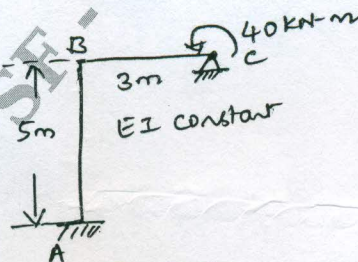 SF -
40 KN-m
B
C
3m
5m
EI Constant
A